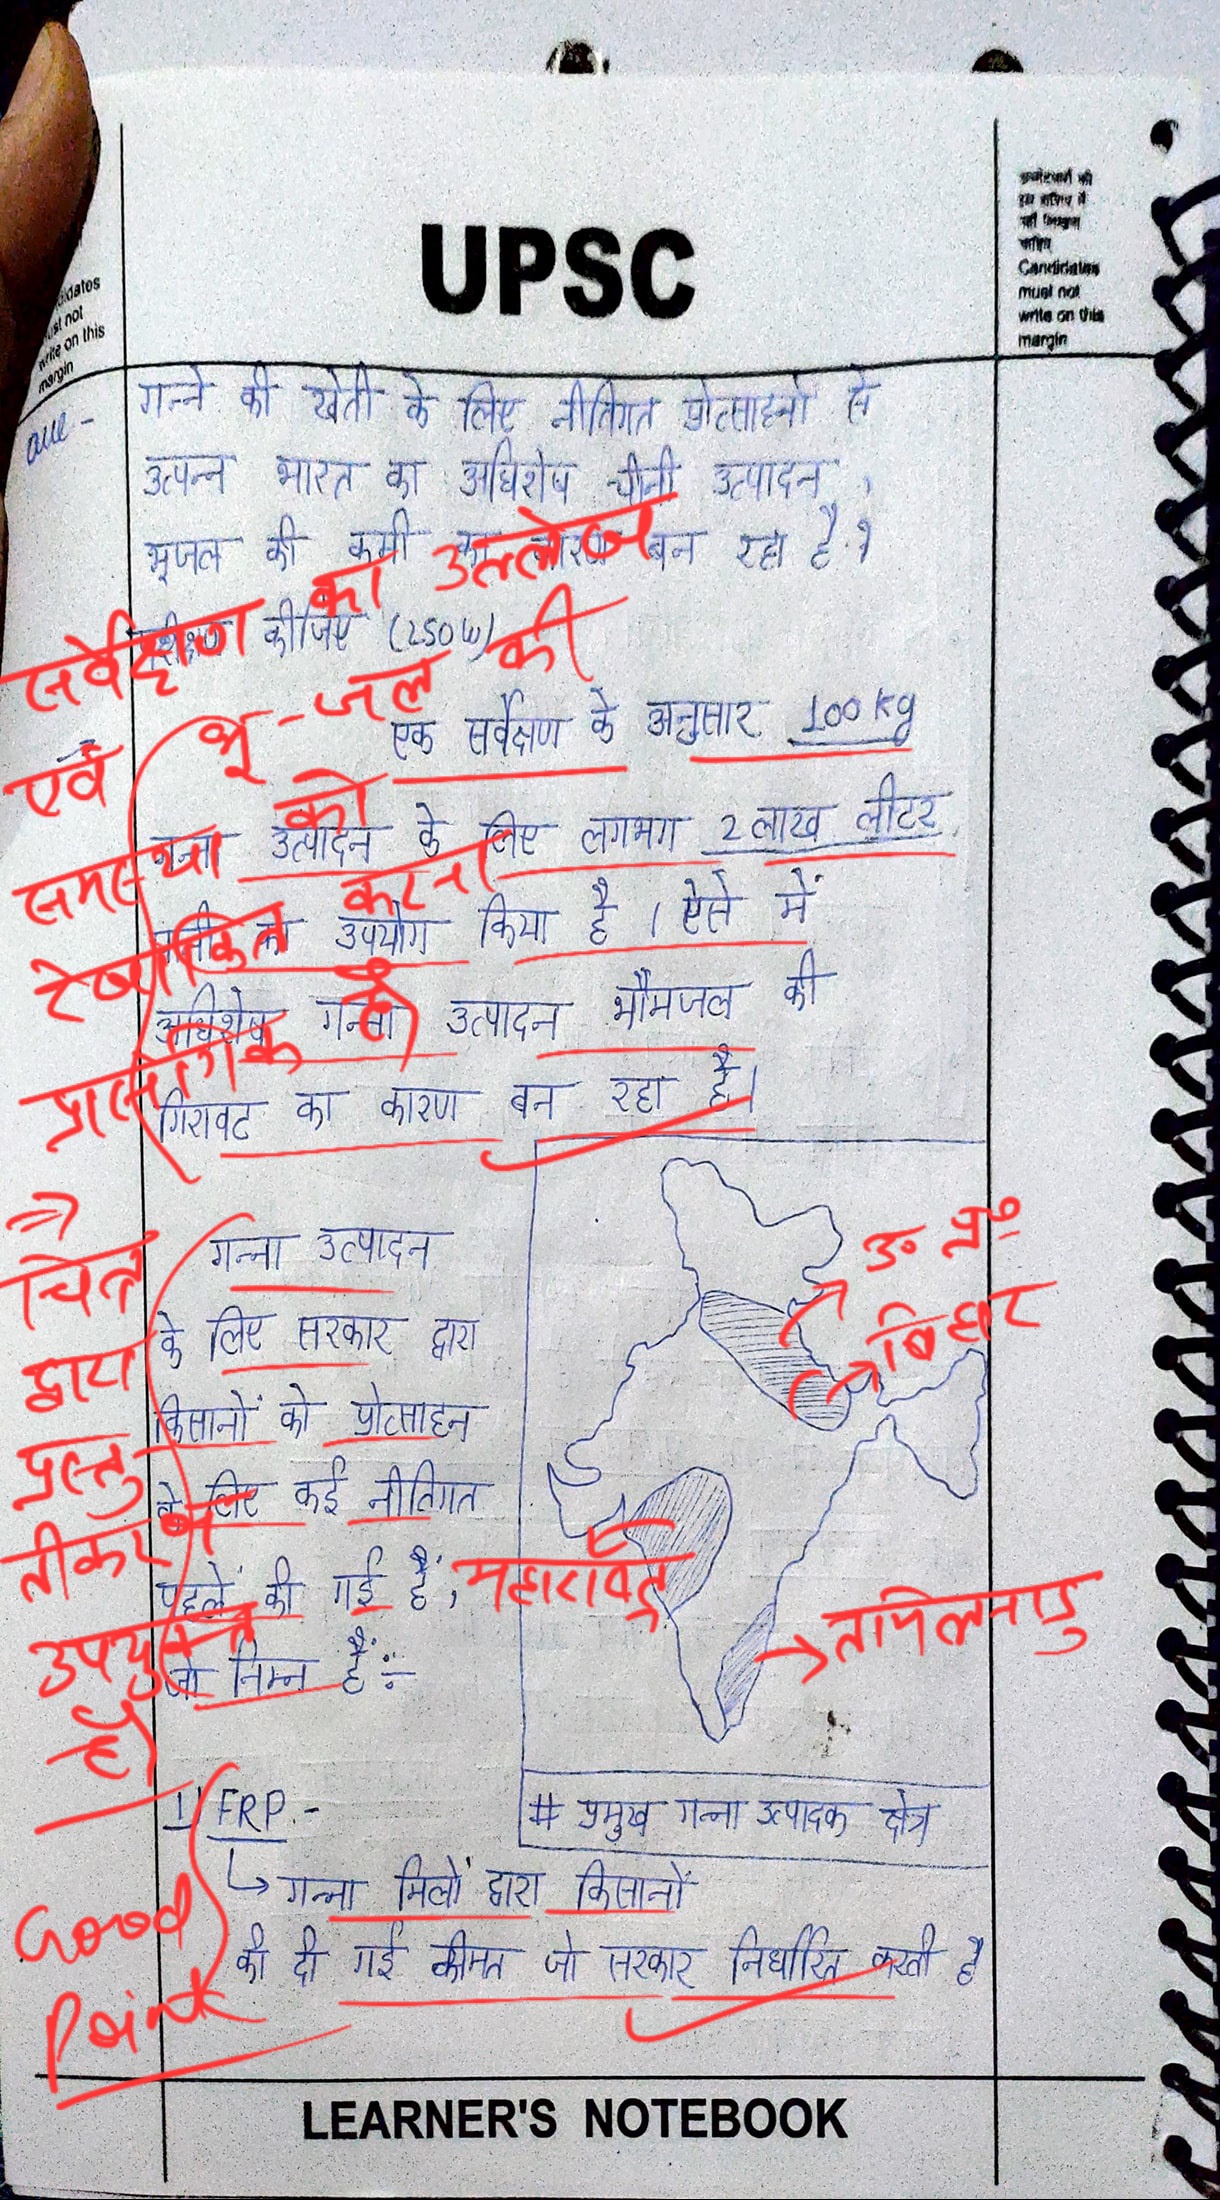 UPSC
उम्मीदवारों को
इस हाशिए में
नहीं लिखना
चाहिए
Candidates
must not
write on this
margin
didates
ust not
write on this
margin
Que -
गन्ने की खेती के लिए नीतिगत प्रोत्साहनों से
उत्पन्न भारत का अधिशेष चीनी उत्पादन,
भूजल की कमी का कारण बन रहा है?
परीक्षण कीजिए (250 W)
एक सर्वेक्षण के अनुसार 100 kg
गन्ना उत्पादन के लिए लगभग 2 लाख लीटर
पानी का उपयोग किया है। ऐसे में
अधिशेष गन्ना उत्पादन भौमजल की
गिरावट का कारण बन रहा है।
सर्वेक्षण का उल्लेख
एवं भू-जल की
समस्या को
रेखांकित करना
प्रासंगिक है
गन्ना उत्पादन
के लिए सरकार द्वारा
किसानों को प्रोत्साहन
के लिए कई नीतिगत
पहलें की गई हैं,
जो निम्न हैं:-
चित्र
द्वारा
प्रस्तु
तीकरण
उपयुक्त
है।
उ॰ प्र॰
बिहार
महाराष्ट्र
तामिलनाडु
# प्रमुख गन्ना उत्पादक क्षेत्र
1) FRP:-
गन्ना मिलों द्वारा किसानों
को दी गई कीमत जो सरकार निर्धारित करती है
Good
Point
LEARNER'S NOTEBOOK